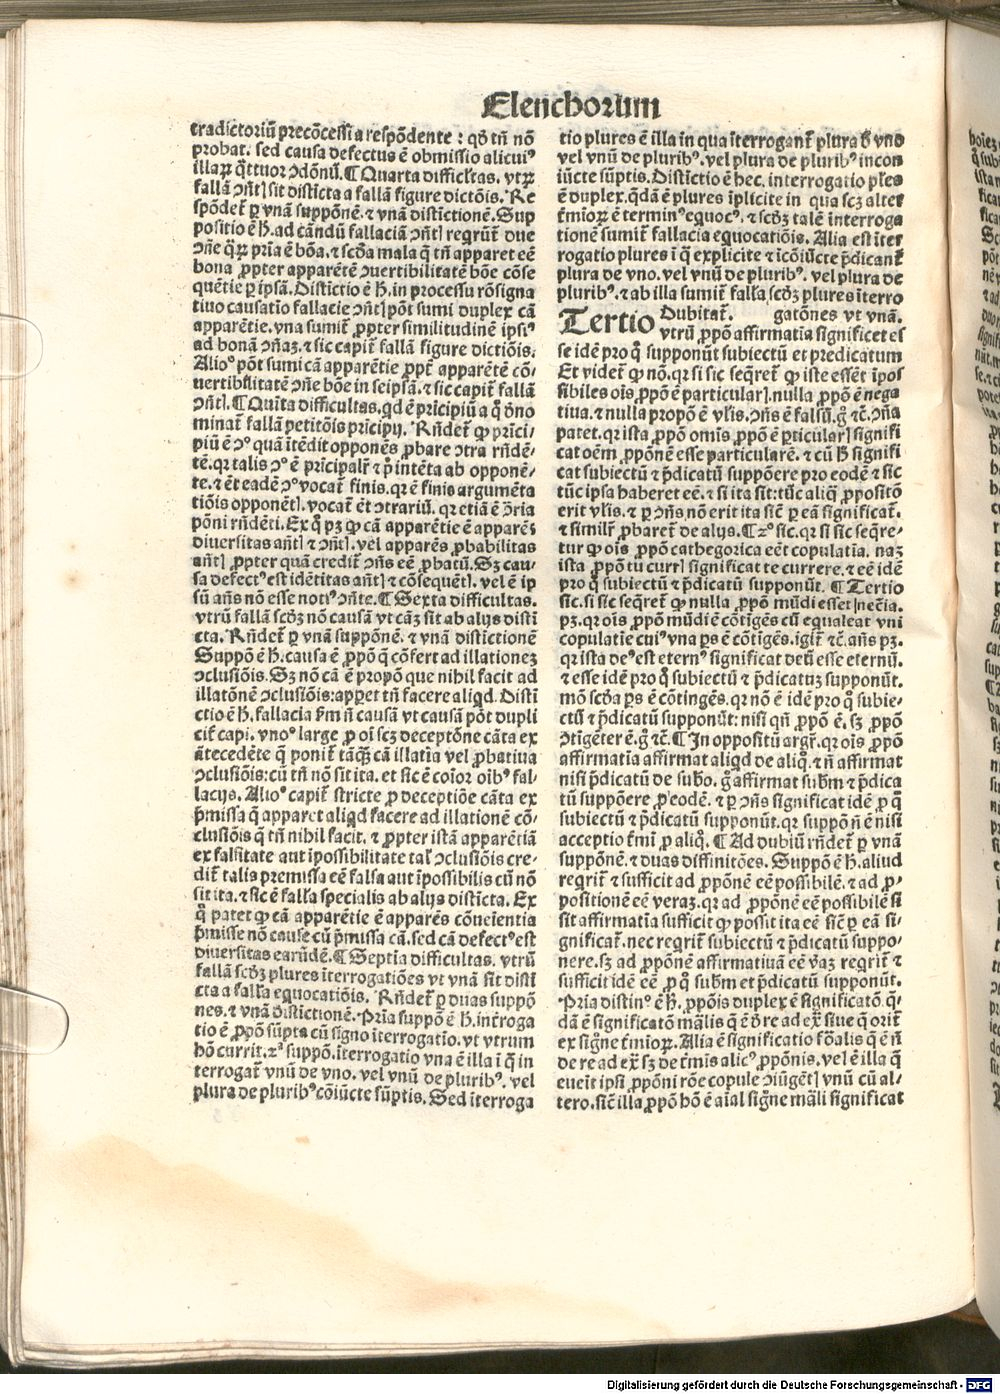 Elenchorum
tradictoriũ precõcessi a respõdente : qđ tñ nõ
probat. sed causa defectus ẽ obmissio alicuiꝰ
illaꝝ q̃ttuor ↄdõnũ. ¶ Quarta difficl̃tas. vtꝝ
fallã ↄñtꝭ sit disticta a fallã figure dictõis. Re
spõdet᷑ ꝑ vnã suppõnẽ. ⁊ vnã distictionẽ. Sup
positio ẽ ħ. ad cãndũ fallaciã ↄñtꝭ reqrũt᷑ due
ↄñe q̃ꝝ pria ẽ bõa. ⁊ scđa mala q̃ tñ apparet eẽ
bona ꝓpter apparẽtẽ ↄuertibilitatẽ bõe cõse
quẽtie ꝑ ipsã. Distictio ẽ ħ. in processu rõsigna
tiuo causatio fallacie ↄñtꝭ põt sumi duplex cã
apparẽtie. vna sumit᷑ ꝓpter similitudinẽ ipsiꝰ
ad bonã ↄñaz. ⁊ sic capit᷑ fallã figure dictiõis.
Alioꝰ põt sumi cã apparẽtie ꝓpt᷑ apparẽtẽ cõ⸗
uertibilitatẽ ↄñe bõe in seipsã. ⁊ sic capit᷑ fallã
ↄñtꝭ. ¶ Quĩta difficultas. qd ẽ pricipiũ a q̊ đno
minat᷑ fallã petitõis pricipij. Rñdet᷑ ꝙ prici⸗
piũ ẽ ↄꝰ quã ĩtẽdit opponẽs ꝓbare ↄtra rñdẽ⸗
tẽ. qꝛ talis ↄꝰ ẽ pricipalr̃ ⁊ p̊ intẽta ab opponẽ⸗
te. ⁊ ẽt eadẽ ↄꝰ vocat᷑ finis. qꝛ ẽ finis argumẽta
tiõis opponẽtꝭ. vocat᷑ ẽt ↄtrariũ. qꝛ etiã ẽ ↄ̃ria
põni rñdẽti. Ex q̊ pꝫ ꝙ cã apparẽtie ẽ apparẽs
diuersitas añtꝭ ⁊ ↄñtꝭ. vel apparẽs ꝓbabilitas
añtꝭ ꝓpter quã credit᷑ ↄñs eẽ ꝓbatũ. Sꝫ cau⸗
sa defectꝰ est idẽtitas añtꝭ ⁊ cõsequẽtꝭ. vel ẽ ip
sũ añs nõ esse notiꝰ ↄñte. ¶ Sexta difficultas.
vtrũ fallã scđꝫ nõ causã vt cãꝫ sit ab alijs disti
cta. Rñdet᷑ ꝑ vnã suppõnẽ. ⁊ vnã distictionẽ
Suppõ ẽ ħ. causa ẽ ꝓpõ q̃ cõfert ad illationeꝫ
ↄclusiõis. Sꝫ nõ cã ẽ propõ que nihil facit ad
illatõnẽ ↄclusiõis: apꝑet tñ facere aliqd. Disti
ctio ẽ ħ. fallacia ẜm ñ causã vt causã põt dupli
cit᷑ capi. vnoꝰ large ꝓ oĩ scꝫ deceptõne cãta ex
ãtecedẽte q̃ ponit᷑ tãq̃ꝫ cã illatia vel ꝓbatiua
ↄclusiõis: cũ tñ nõ sit ita. et sic ẽ coĩor oibꝰ fal⸗
lacijs. Alioꝰ capit᷑ stricte ꝓ deceptiõe cãta ex
p̃missa q̃ apparet aliqd facere ad illationẽ cõ⸗
clusiõis q̃ tñ nihil facit. ⁊ ꝓpter istã apparẽtiã
ex falsitate aut ĩpossibilitate tal᷑ ↄclusiõis cre⸗
dit᷑ talis premissa eẽ falsa aut ĩpossibilis cũ nõ
sit ita. ⁊ sic ẽ fałła specialis ab alijs disticta. Ex
q̊ patet ꝙ cã apparẽtie ẽ apparẽs cõueĩentia
p̃misse nõ cause cũ p̃missa cã. sed cã defectꝰ est
diuersitas earũdẽ. ¶ Septia difficultas. vtrũ
fallã scđꝫ plures ĩterrogatiões vt vnã sit disti
cta a fałła equocatiõis. Rñdet᷑ ꝑ duas suppõ
nes. ⁊ vnã distictionẽ. Pria suppõ ẽ ħ. int̃roga
tio ẽ ꝓpõ sũpta cũ signo ĩterrogatio. vt vtrum
hõ currit. 2ꝰ suppõ. ĩterrogatio vna ẽ illa ĩ q̃ in
terrogat᷑ vnũ de vno. vel vnũ de pluribꝰ. vel
plura de pluribꝰ cõiũcte sũptis. Sed ĩterroga
tio plures ẽ illa in qua ĩterrogant᷑ plura đ vno
vel vnũ de pluribꝰ. vel plura de pluribꝰ incon
iũcte sũptis. Distictio ẽ hec. interrogatio pl̃es
ẽ duplex. qdã ẽ plures ĩplicite in qua scꝫ alter
t̃mioꝝ ẽ terminꝰ equocꝰ. ⁊ scđꝫ talẽ ĩnterroga
tionẽ sumit᷑ fallacia equocatiõis. Alia est ĩter
rogatio plures ĩ q̃ explicite ⁊ icõiũcte p̃dicant᷑
plura de vno. vel vnũ de pluribꝰ. vel plura de
pluribꝰ. ⁊ ab illa sumit᷑ fałła scđꝫ plures ĩterro
gatõnes vt vnã.
Tertio Dubitat᷑.
vtrũ ꝓpõ affirmatĩa significet es
se idẽ pro q̊ supponũt subiectũ et predicatum
Et videt᷑ ꝙ nõ. qꝛ si sic seq̃ret᷑ ꝙ iste essẽt ĩpos
sibiles oĩs ꝓpõ ẽ particularꝭ. nulla ꝓpõ ẽ nega
tiua. ⁊ nulla propõ ẽ vl̃is. ↄñs ẽ falsũ. g̊ ⁊c̃. ↄña
patet. qꝛ ista ꝓpõ omĩs ꝓpõ ẽ ꝑticularꝭ signifi
cat oẽm ꝓpõnẽ esse particularẽ. ⁊ cũ ħ signifi
cat subiectũ ⁊ p̃dicatũ suppõere pro eodẽ ⁊ sic
tũc ipsa haberet eẽ. ⁊ si ita sit: tũc aliq̃ ꝓpositõ
erit vl̃is. ⁊ ꝑ ↄñs nõ erit ita sic̃ ꝑ eã significat᷑.
⁊ similr̃ ꝓbaret᷑ de alijs. ¶ 2ꝰ sic. qꝛ si sic seq̃re⸗
tur ꝙ oĩs ꝓpõ cathegorica eẽt copulatia. naꝫ
ista ꝓpõ tu currꝭ significat te currere. ⁊ eẽ idẽ
pro q̊ subiectũ ⁊ p̃dicatũ supponũt. ¶ Tertio
sic. si sic seq̃ret᷑ ꝙ nulla ꝓpõ mũdi esset necẽia.
pꝫ. qꝛ oĩs ꝓpõ mũdi ẽ cõtĩgẽs cũ equaleat vni
copulatie cuiꝰ vna ps ẽ cõtĩgẽs. igit᷑ ⁊c̃. añs pꝫ.
qꝛ ista deꝰ est eternꝰ significat deũ esse eternũ.
⁊ esse idẽ pro q̊ subiectũ ⁊ p̃dicatuꝫ supponũt.
mõ scđa ps ẽ cõtingẽs. qꝛ nõ ẽ idẽ pro q̊ subie⸗
ctũ ⁊ p̃dicatũ supponũt: nisi qñ ꝓpõ ẽ. sꝫ ꝓpõ
ↄtĩgẽter ẽ. g̊ ⁊c̃. ¶ In oppositũ argr̃. qꝛ oĩs ꝓpõ
affirmatĩa affirmat aliqd de aliq̊. ⁊ ñ affirmat
nisi p̃dicatũ de subo. g̊ affirmat subm̃ ⁊ p̃dica
tũ suppõere ꝓ eodẽ. ⁊ ꝑ ↄñs significat idẽ ꝓ q̊
subiectũ ⁊ p̃dicatũ supponũt. qꝛ suppõ ñ ẽ nisi
acceptio t̃mi ꝓ aliq̊. ¶ Ad dubiũ rñdet᷑ ꝑ vnã
suppõnẽ. ⁊ duas diffinitões. Suppõ ẽ ħ. aliud
reqrit᷑ ⁊ sufficit ad ꝓpõnẽ eẽ possibilẽ. ⁊ ad ꝓ⸗
positionẽ eẽ veraꝫ. qꝛ ad ꝓpõnẽ eẽ possibilẽ si
sit affirmatĩa sufficit ꝙ possit ita eẽ sic̃ ꝑ eã si⸗
gnificat᷑. nec reqrit᷑ subiectũ ⁊ p̃dicatũ suppo⸗
nere. sꝫ ad ꝓpõnẽ affirmatiuã eẽ v̾aꝫ reqrit᷑ ⁊
sufficit idẽ eẽ ꝓ q̊ subm̃ et p̃dicatũ supponũt.
Pria distinꝰ ẽ ħ. ꝓpõis duplex ẽ significatõ. q̃⸗
dã ẽ significatõ mãlis q̃ ẽ đre ad ex̃ siue q̃ orit᷑
ex sig̃ne t̃mioꝝ. Alia ẽ significatio f̾õalis q̃ ẽ ñ
de re ad ex̃ sꝫ de t̃mis alicꝰ ꝓpõnis. vel ẽ illa q̃
eueit ipsi ꝓpõni rõe copule ↄiũgẽtꝭ vnũ cũ al⸗
tero. sic̃ illa ꝓpõ hõ ẽ aĩal sig̃ne mãli significat
Digitalisierung gefördert durch die Deutsche Forschungsgemeinschaft - DFG